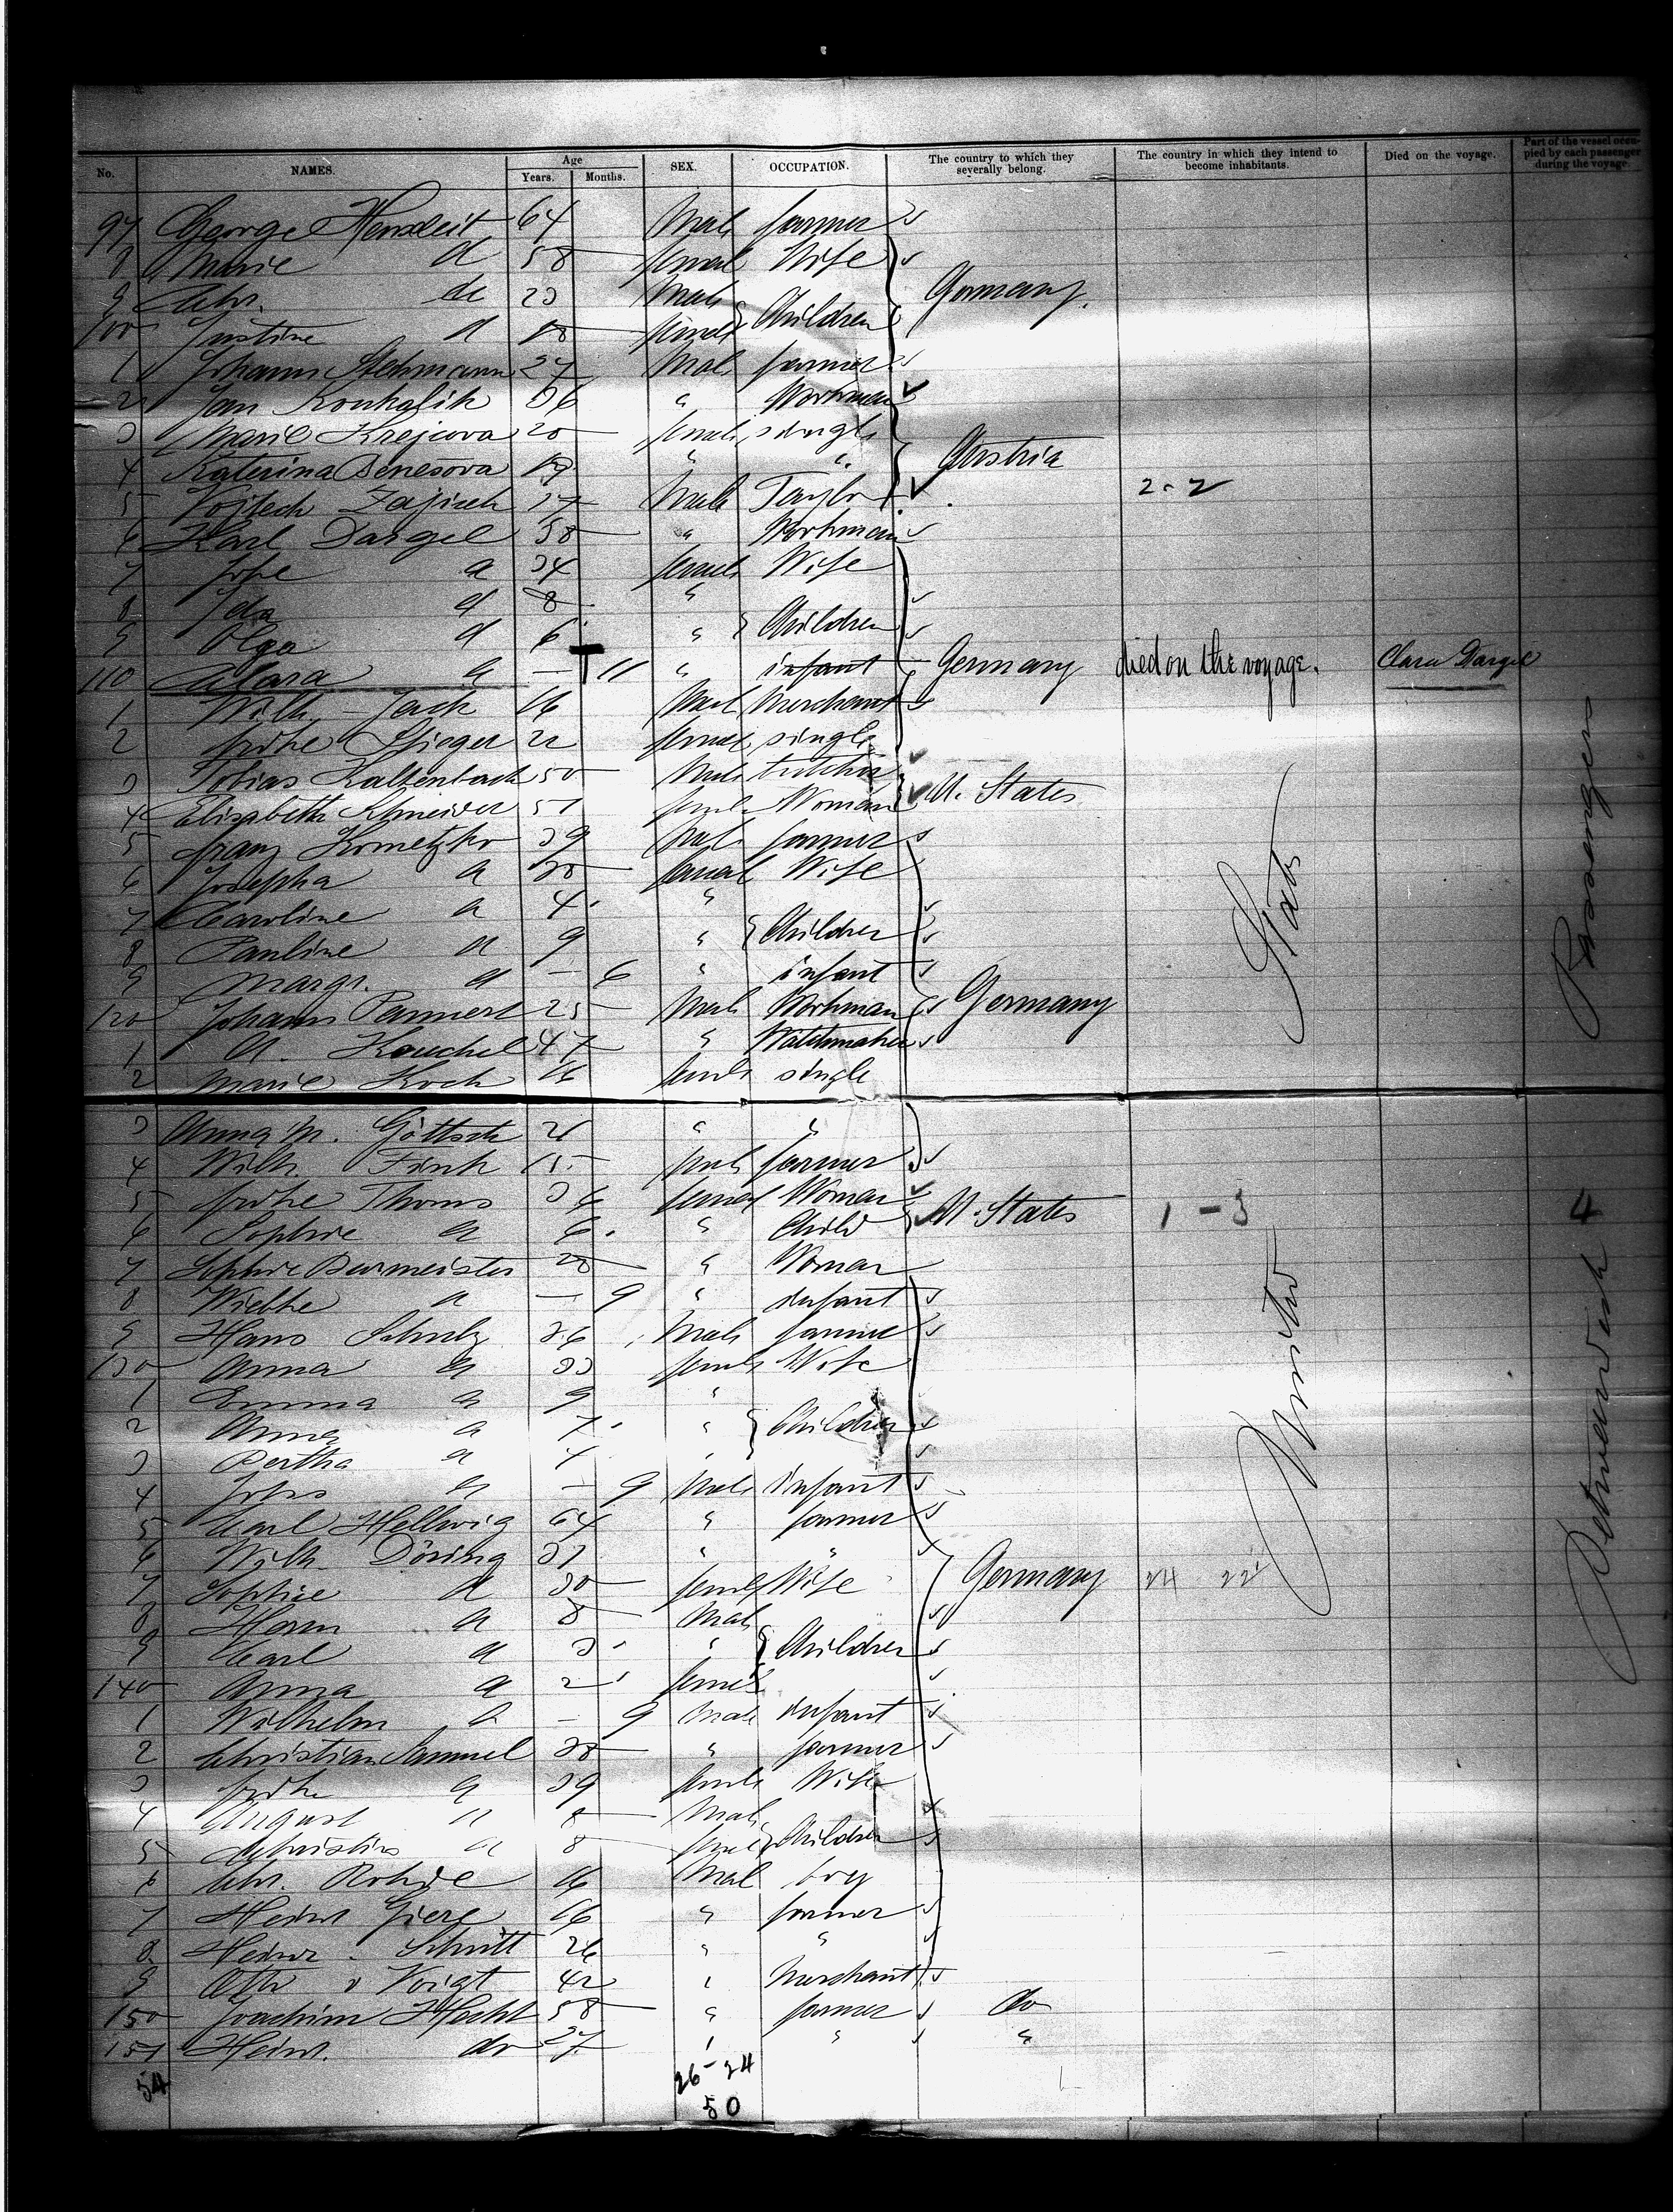 No. NAMES. Age Years. Months. SEX. OCCUPATION. The country to which they severally belong. The country in which they intend to become inhabitants. Died on the voyage. Part of the vessel occupied by each passenger during the voyage.
97 George 64 Male farmer
8 Marie d 58 femal Wife
9 Chr. do 23 Male Children Germany.
100 Justine d 18 female
1 Johann Stehmann 27 Mal farmer
2 Jan 36 " Workman
3 Marie Krejcova 20 female single
4 Katerina Benesova 19 " " Austria
5 Vojtech 17 Male Taylor 2-2
6 Karl Dargel 38 " Workman
7 d 34 female Wife
8 Ida d 8 "
9 Olga d 6 " Children
110 Clara d — 11 " infant Germany died on the voyage. Clara Dargel
1 Wilh. Jack 16 Male Merchant
2 22 female single
3 Tobias Kaltenbach 50 Male
4 Elisabeth Schneider 51 female Woman U. States
5 Franz 39 Male farmer
6 Josepha d 30 femal Wife
7 Caroline d 4 "
8 Pauline d 9 " Children
9 Margr. d — 6 " infant
120 Johann 25 Male Workman Germany
1 47 " Watchmaker
2 Marie Koch 16 female single
3 Anna M. Göttsch 21 " "
4 Wilh. Finck 15 Male farmer
5 Thoms 36 femal Woman
6 Sophie d 6 " Child U. States 1-3 4
7 Sophie Burmeister 28 " Woman
8 Wiebke d — 9 " Infant
9 Hans Schulz 36 Male farmer
130 Anna d 33 female Wife
1 Emma d 9 "
2 Anna d 7 " Children
3 Bertha d 4 "
4 d — 9 Male infant
5 Carl Hellwig 64 " farmer
6 Wilh. Döring 31 " "
7 Sophie d 30 female Wife Germany 24 22
8 Herm d 8 Mal
9 Carl d 3 " Children
140 Anna d 2 female
1 Wilhelm d — 9 Male Infant
2 Christian Samuel 38 " farmer
3 d 39 female Wife
4 August d 8 Mal
5 d 8 female Children
6 Chr. Rohde 16 Mal boy
7 Heinr 16 " farmer
8 Heinr. Schütt 26 " "
9 Otto v Voigt 42 " Merchant
150 Joachim Hecht 58 " farmer do
151 Heinr. do 27 " " "
54 26-24
50
United States
Between deck Passengers